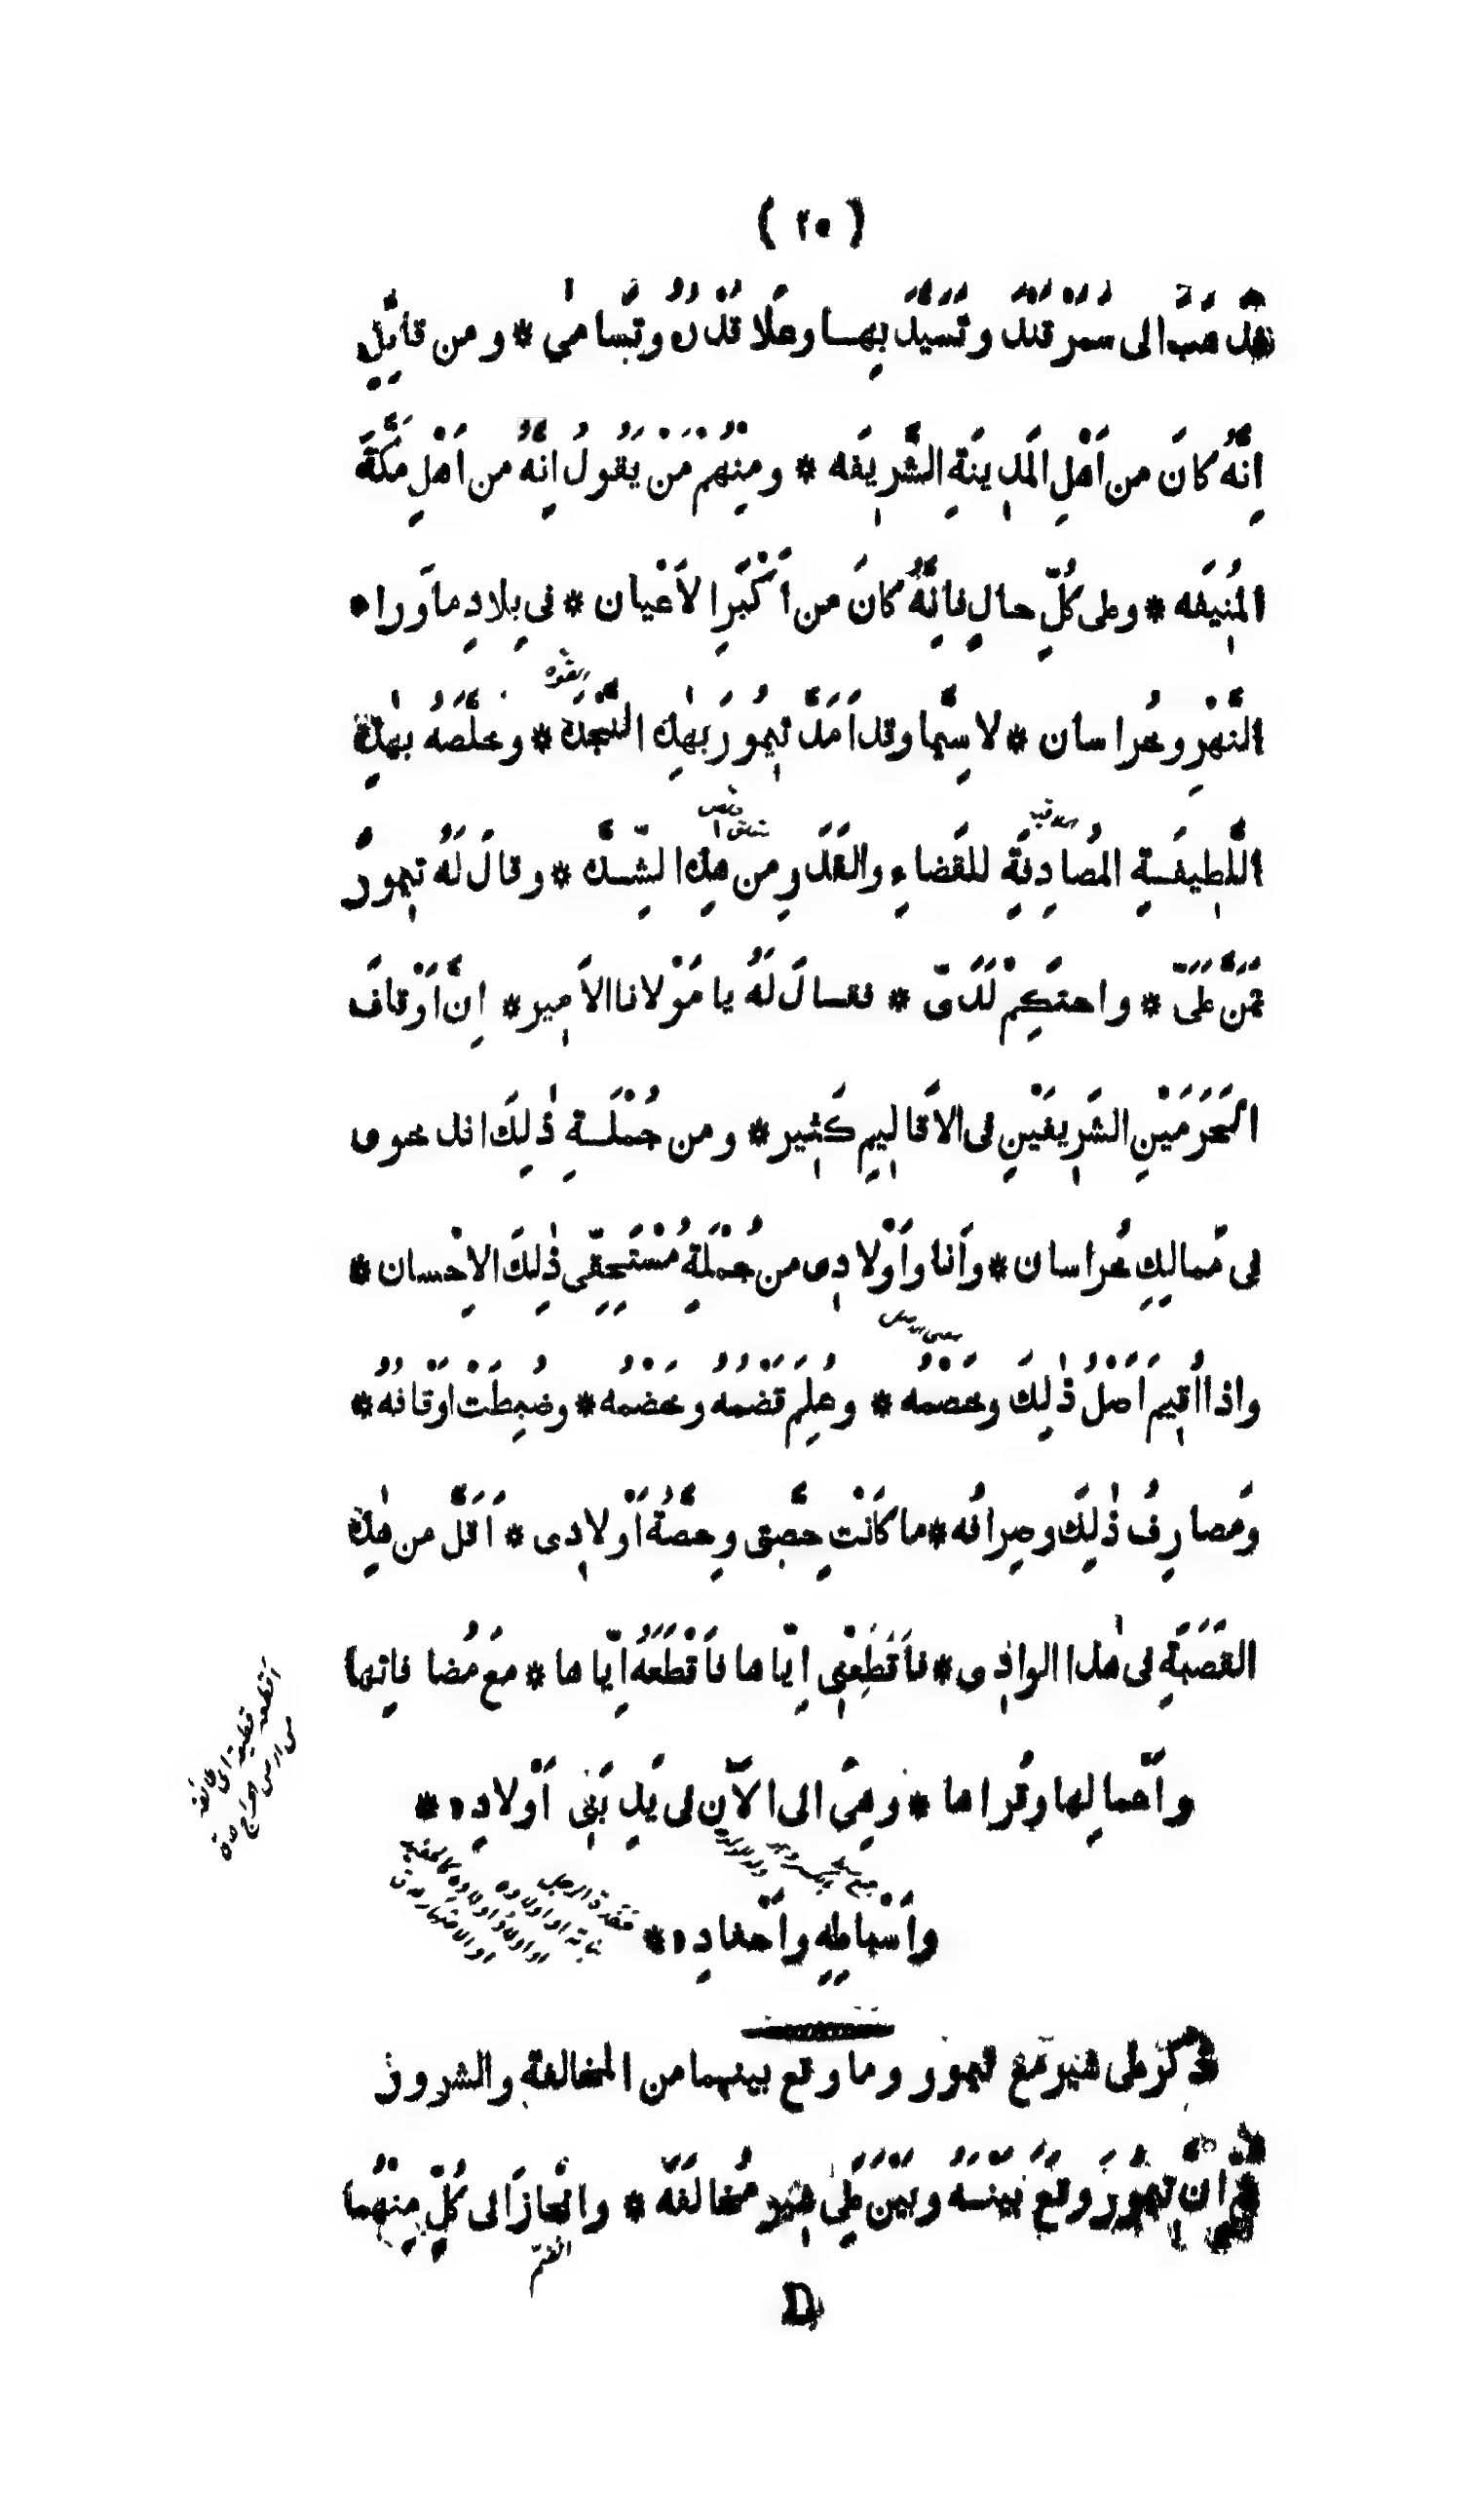 ( ٢٥ )
فذهبَ الى سَمَرْقَنْدَ وتَسَيَّدَ بِها وعَلَا قَدْرُهُ وتَسامٰى * ومن قائِلٍ
اِنَّهُ كانَ من اَهْلِ المَدِينَةِ الشَّرِيفَه * ومِنْهُمْ مَنْ يَقُولُ اِنَّهُ من اَهْلِ مَكَّةَ
المُنِيفَه * وعلى كُلِّ حالٍ فاِنَّهُ كانَ من اَكْبَرِ الاَعْيان * فى بِلادِ ما وَراءَ
النَّهْرِ وخُراسان * لا سِيَّما وقد اَمَدَّ تِيمُورَ بهٰذِهِ النَّجْدَة * وخَلَّصَهُ بهٰذِهِ
اللَّطِيفَةِ المُصادِفَةِ للقَضاءِ والقَدَرِ من هٰذِهِ الشِّدَّة * وقالَ لَهُ تِيمُورُ
تَمَنَّ عَلَىَّ * واحتَكِمْ لَدَىَّ * فقالَ لَهُ يا مَوْلانا الاَمِير * اِنَّ اَوْقافَ
الحَرَمَيْنِ الشَرِيفَيْنِ فى الاَقالِيمِ كَثِير * ومن جُمْلَةِ ذٰلِكَ اندخوى
فى مَمالِكِ خُراسان * وَاَنا وَاَوْلادِى من جُمْلَةِ مُسْتَحِقِّى ذٰلِكَ الاِحْسان *
واذا اُقِيمَ اَصْلُ ذٰلِكَ وخَصْمُه * وعُلِمَ قَضْمُهُ وخَضْمُه * وضُبِطَتْ اوْقافُهُ *
وَمصارِفُ ذٰلِكَ وصِرافُه * ما كانَتْ حِصَّتِى وحِصَّةُ اَوْلادِى * اَقَلَّ من هٰذِهِ
القَصَبَةِ فى هٰذا الوادِى * فاَقْطِعْنِى اِيّاها فاَقْطَعَهُ اِيّاها * مَعَ مُضافاتِها
واَعْمالِها وقُراها * وَهِىَ الى الآن فى يَدِ بَنِى اَوْلادِه *
واَسْباطِهِ واَحْفادِه *
ذكر على شير مع تيمور وما وقع بينهما من المخالفة والشرور
ثم اِنَّ تِيمُورَ وقعَ بَيْنَهُ وبَيْنَ عَلِى شِير مُخالَفَة * وانْحازَ اَلى كُلٍّ مِنْهُما
انضم
D